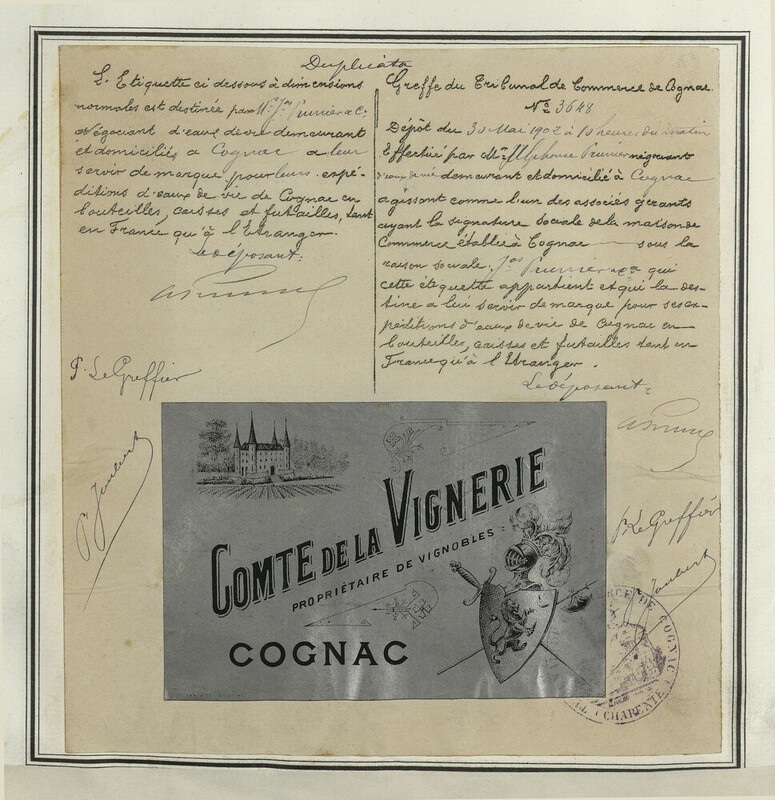 Duplicata
L'Etiquette ci dessous à dimensions
normales est destinée par Mr Jas Prunier & Co
Négociant d'eaux de vie demeurant
et domiciliés a Cognac a leur
servir de marque pour leurs expé-
ditions d'eaux de vie de Cognac en
bouteilles, caisses et futailles, tant
en France qu'à l'Etranger.
Le déposant:
P. Le Greffier
Greffe du Tribunal de Commerce de Cognac.
No 3648
Dépôt du 30 Mai 1902 à 10 heures du matin
Effectué par Mr Alphonse Prunier négociant
d'eaux de vie demeurant et domicilié à Cognac
agissant comme l'un des associés gérants
ayant la signature sociale de la maison de
Commerce établie à Cognac sous la
raison sociale. Jas Prunier & Co qui
cette étiquette appartient et qui la des-
tine a lui servir de marque pour ses ex-
péditions d'eaux de vie de Cognac en
bouteilles, caisses et futailles tant en
France qu'à l'Etranger.
Le déposant:
P. Le Greffier
COMTE DE LA VIGNERIE
PROPRIÉTAIRE DE VIGNOBLES
COGNAC
CE DE COGNAC
CHARENTE